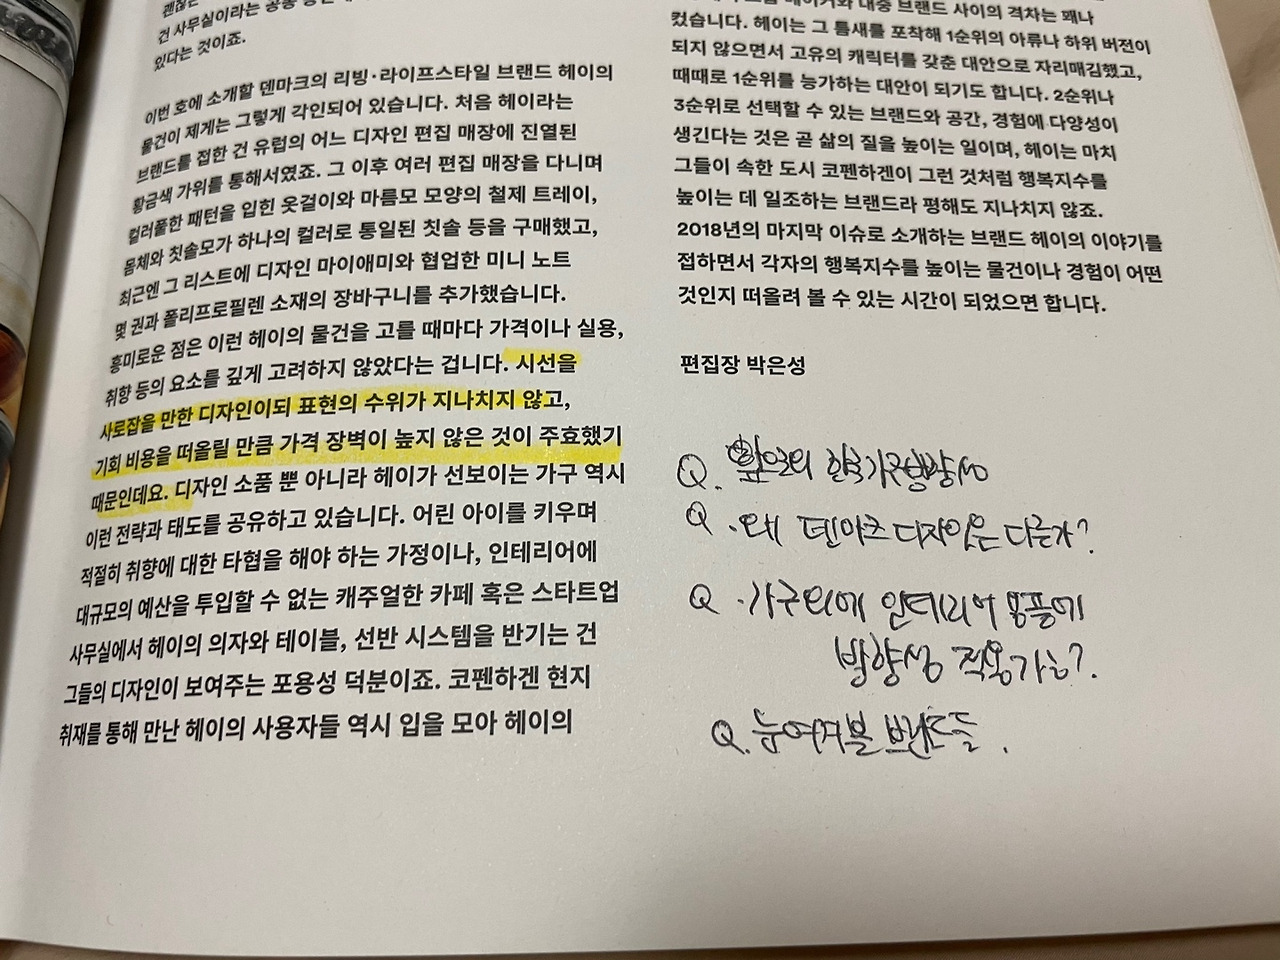 괜찮은
건 사무실이라는 공통
있다는 것이죠.
이번 호에 소개할 덴마크의 리빙·라이프스타일 브랜드 헤이의
물건이 제게는 그렇게 각인되어 있습니다. 처음 헤이라는
브랜드를 접한 건 유럽의 어느 디자인 편집 매장에 진열된
황금색 가위를 통해서였죠. 그 이후 여러 편집 매장을 다니며
컬러풀한 패턴을 입힌 옷걸이와 마름모 모양의 철제 트레이,
몸체와 칫솔모가 하나의 컬러로 통일된 칫솔 등을 구매했고,
최근엔 그 리스트에 디자인 마이애미와 협업한 미니 노트
몇 권과 폴리프로필렌 소재의 장바구니를 추가했습니다.
흥미로운 점은 이런 헤이의 물건을 고를 때마다 가격이나 실용,
취향 등의 요소를 깊게 고려하지 않았다는 겁니다. 시선을
사로잡을 만한 디자인이되 표현의 수위가 지나치지 않고,
기회 비용을 떠올릴 만큼 가격 장벽이 높지 않은 것이 주효했기
때문인데요. 디자인 소품 뿐 아니라 헤이가 선보이는 가구 역시
이런 전략과 태도를 공유하고 있습니다. 어린 아이를 키우며
적절히 취향에 대한 타협을 해야 하는 가정이나, 인테리어에
대규모의 예산을 투입할 수 없는 캐주얼한 카페 혹은 스타트업
사무실에서 헤이의 의자와 테이블, 선반 시스템을 반기는 건
그들의 디자인이 보여주는 포용성 덕분이죠. 코펜하겐 현지
취재를 통해 만난 헤이의 사용자들 역시 입을 모아 헤이의
대중 브랜드 사이의 격차는 꽤나
컸습니다. 헤이는 그 틈새를 포착해 1순위의 아류나 하위 버전이
되지 않으면서 고유의 캐릭터를 갖춘 대안으로 자리매김했고,
때때로 1순위를 능가하는 대안이 되기도 합니다. 2순위나
3순위로 선택할 수 있는 브랜드와 공간, 경험에 다양성이
생긴다는 것은 곧 삶의 질을 높이는 일이며, 헤이는 마치
그들이 속한 도시 코펜하겐이 그런 것처럼 행복지수를
높이는 데 일조하는 브랜드라 평해도 지나치지 않죠.
2018년의 마지막 이슈로 소개하는 브랜드 헤이의 이야기를
접하면서 각자의 행복지수를 높이는 물건이나 경험이 어떤
것인지 떠올려 볼 수 있는 시간이 되었으면 합니다.
편집장 박은성
Q. 앞으로의 한국가구방향성
Q. 왜 덴마크 디자인은 다른가?
Q. 가구외에 인테리어 용품에
방향성 적용가능?
Q. 눈여겨볼 브랜드들.